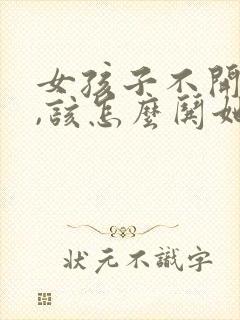 女孩子不開
,該怎麼鬨她
狀元不識字